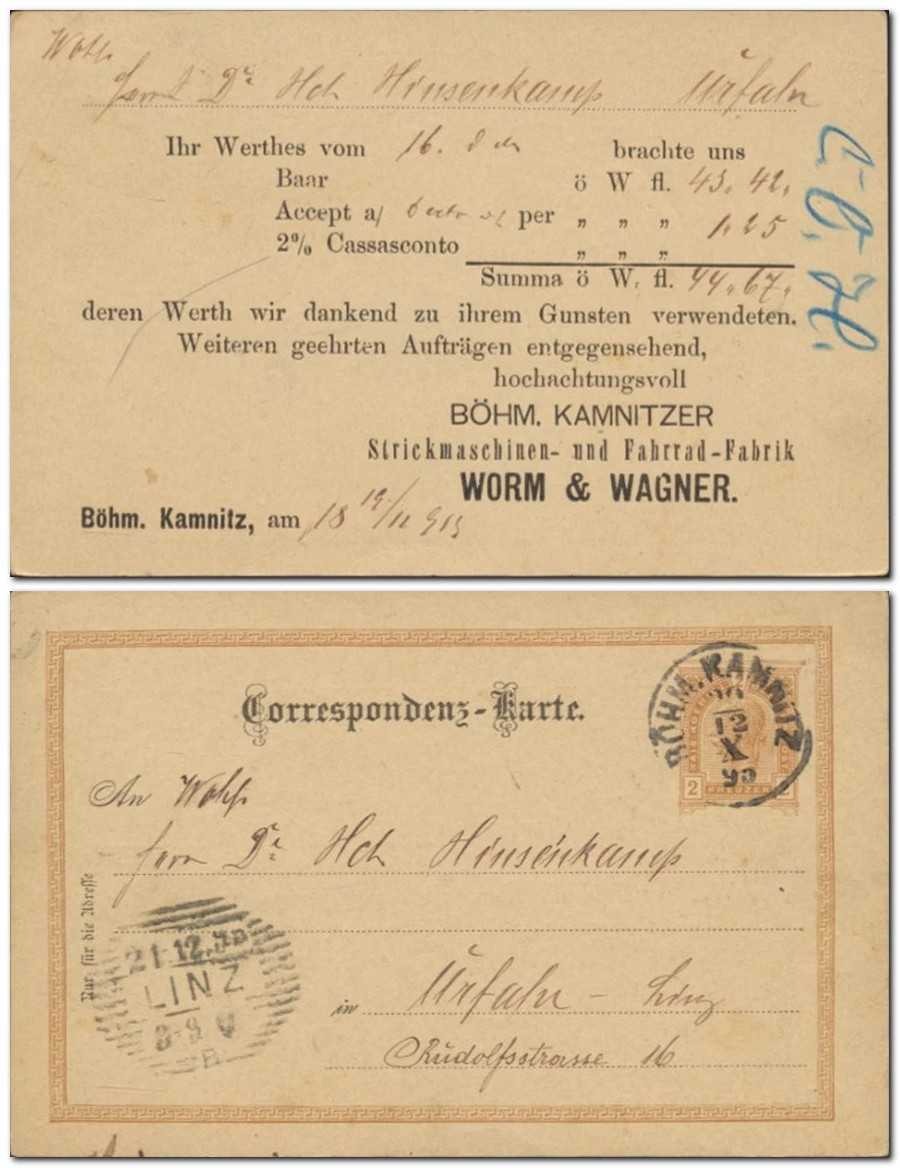 Wohl
Herrn Dr. Hch Hinsenkamp Urfahr
Ihr Werthes vom 16. d brachte uns
Baar ö W fl. 43. 42.
Accept a/ per „ „ „ 1. 25
2% Cassasconto „ „ „
Summa ö W. fl. 44. 67.
deren Werth wir dankend zu ihrem Gunsten verwendeten.
Weiteren geehrten Aufträgen entgegensehend,
hochachtungsvoll
BÖHM. KAMNITZER
Strickmaschinen- und Fahrrad-Fabrik
WORM & WAGNER.
Böhm. Kamnitz, am 18
Correspondenz-Karte.
BÖHM. KAMNITZ
12
X
2 KREUZER 2
An Wohl
Herrn Dr. Hch Hinsenkamp
Nur für die Adresse
21.12.
LINZ
in Urfahr - Linz
Rudolfsstrasse 16